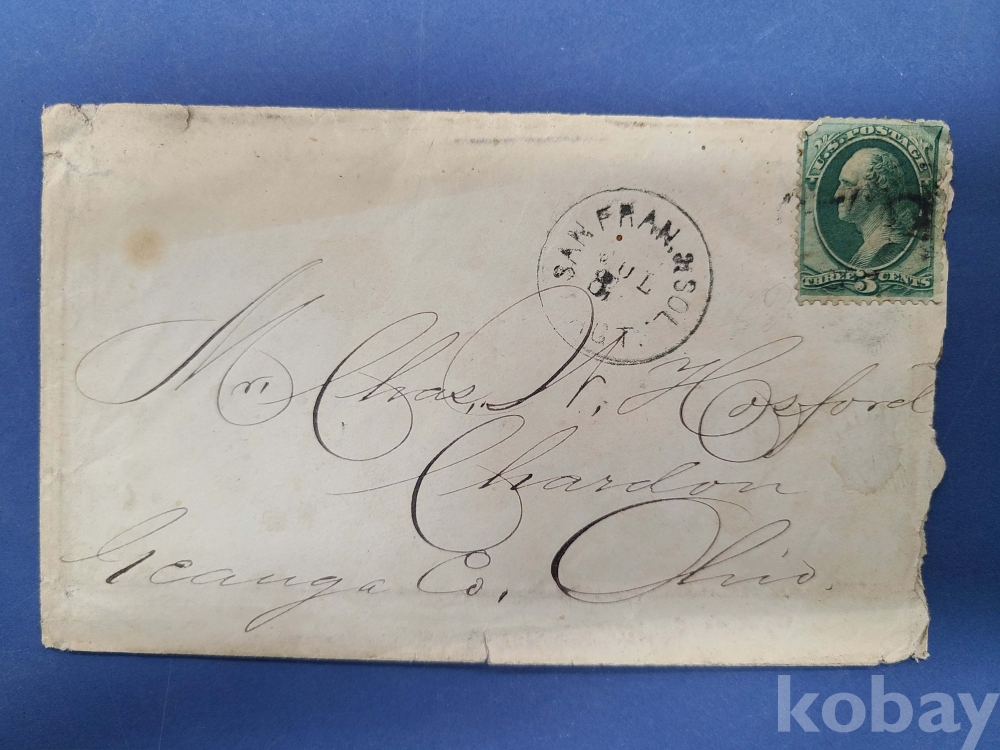 U.S. POSTAGE
THREE 3 CENTS
SAN FRAN. & SOL.
JUL
8
Mr. Chas. W. Hosford
Chardon
Geauga Co., Ohio.
kobay